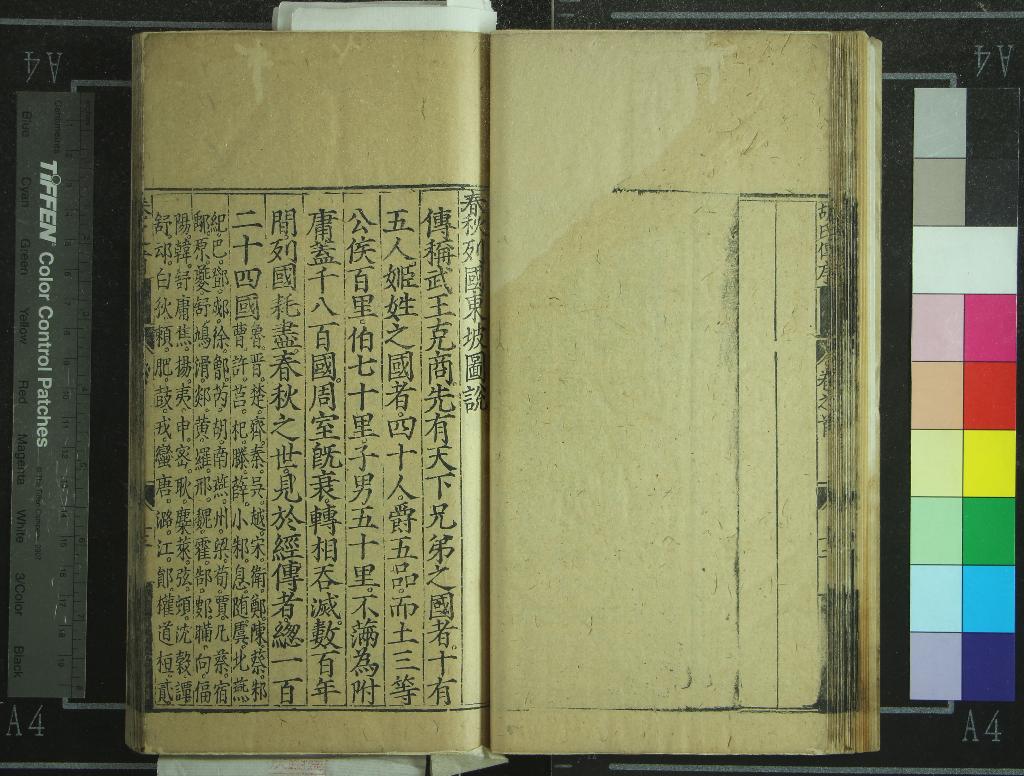 春秋列國東坡圖說
傳稱武王克商先有天下兄弟之國者十有
五人姬姓之國者四十人爵五品而土三等
公侯百里伯七十里子男五十里不滿為附
庸蓋千八百國周室旣衰轉相吞滅數百年
間列國耗盡春秋之世見於經傳者緫一百
二十四國魯晋楚齊秦吳越宋衛鄭陳蔡邾
曹許莒杞滕薛小邾息随虞北燕
紀巴鄧郕徐鄫芮胡南燕州梁荀賈凡蔡宿
郳原夔舒鳩滑郯黄羅邢魏霍郜鄅暪向偪
陽韓舒庸焦揚夷申密耿麇萊弦頓沈穀譚
舒邧白狄賴肥鼓戎蠻唐潞江鄖權道桓貳
卷之首
TIFFEN Color Control Patches
Blue Cyan Green Yellow Red Magenta White 3/Color Black
Centimetres
A4
A4
A4
A4